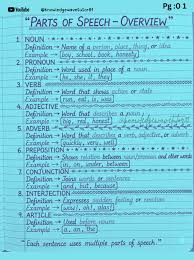 YouTube @knowledgewavewalsidra01 Pg:01
"PARTS OF SPEECH – OVERVIEW"
1. NOUN
Definition → Name of a person, place, thing, or idea
Example → (boy, school, book, honesty)
2. PRONOUN
Definition → Word used in place of a noun
Example → (he, she, it, they)
3. VERB
Definition → Word that shows action or state
Example → (run, eat, is, are)
4. ADJECTIVE
Definition → Word that describes a noun
Example → (big, red, honest)
5. ADVERB
Definition → Word that describes a verb, adjective, or adverb
Example → (quickly, very, well)
6. PREPOSITION
Definition → Shows relation between noun/pronoun and other words
Example → (in, on, between, under)
7. CONJUNCTION
Definition → Joins words or sentences
Example → (and, but, because)
8. INTERJECTION
Definition → Expresses sudden feeling or emotion
Example → (wow!, oh!, alas!)
9. ARTICLE
Definition → Used before nouns
Example → (a, an, the)
"Each sentence uses multiple parts of speech."